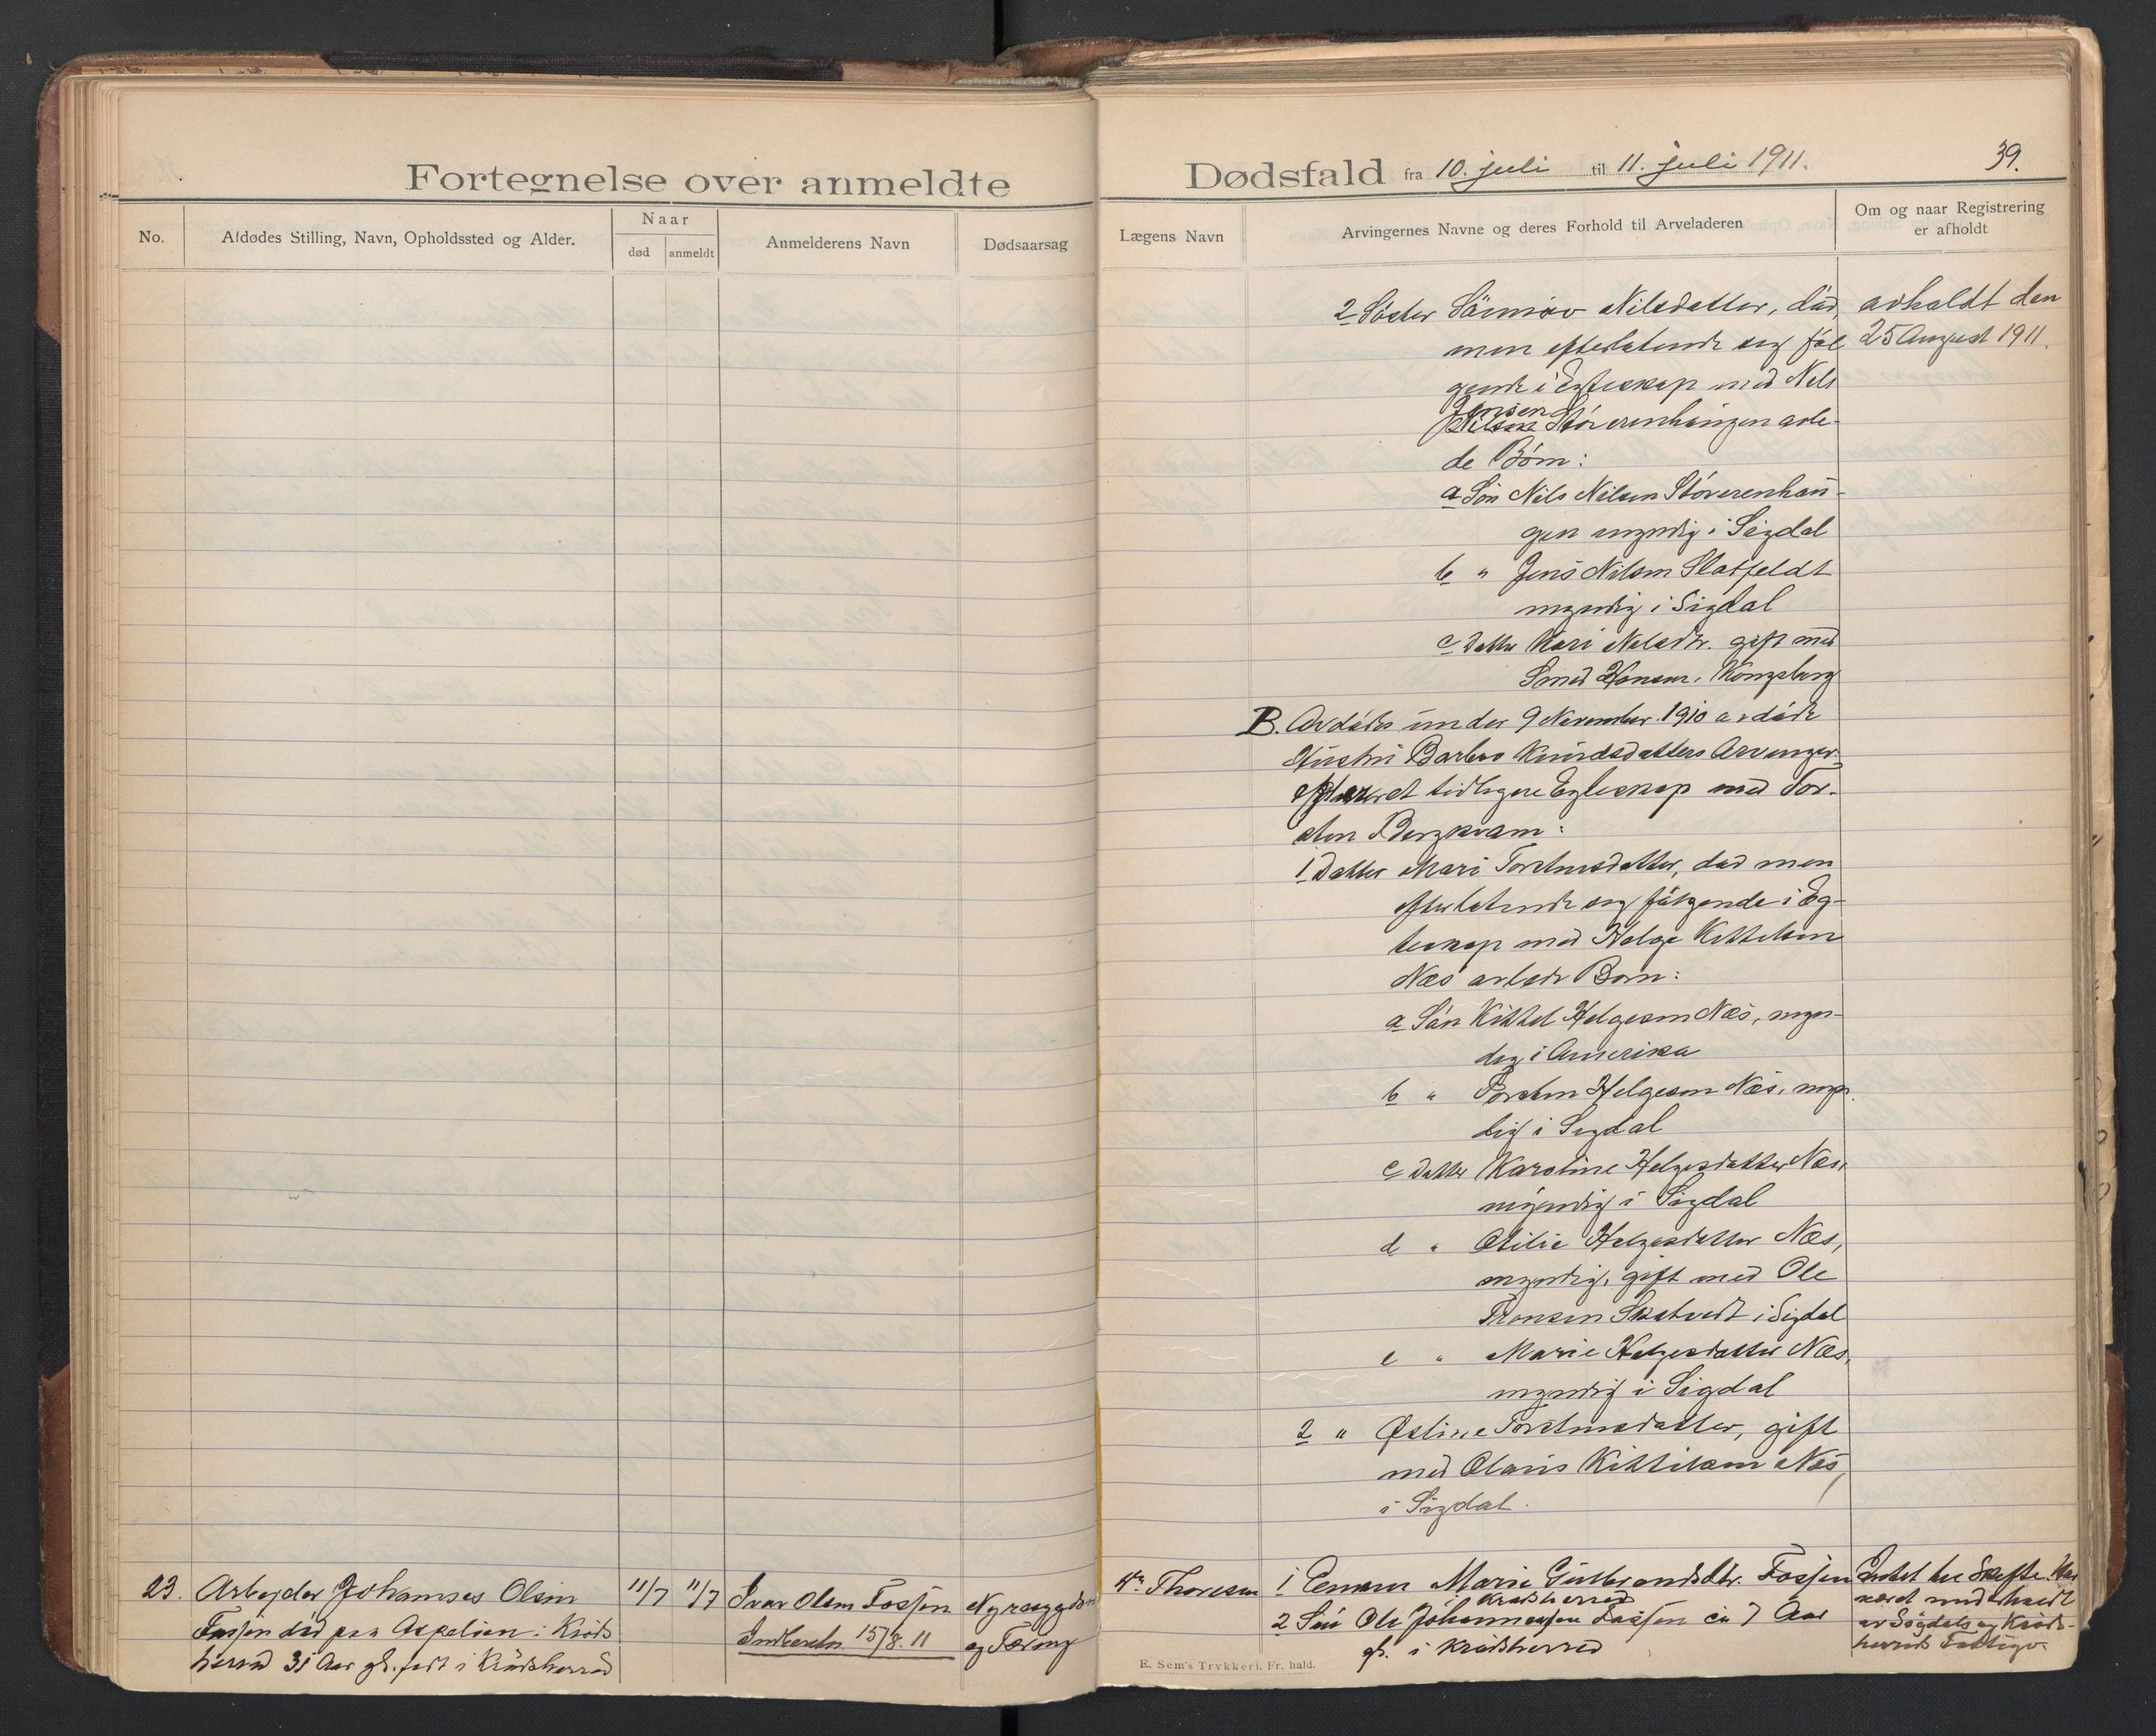 Fortegnelse over anmeldte
Dødsfald fra 10. juli til 11. juli 1911.
39.
No.
Afdødes Stilling, Navn, Opholdssted og Alder.
Naar
død
anmeldt
Anmelderens Navn
Dødsaarsag
Lægens Navn
Arvingernes Navne og deres Forhold til Arveladeren
Om og naar Registrering
er afholdt
2 Søster Nilsdatter, død,
men efterlatende seg føl
gende i Egteskap med Nils
Jensen Støverenhaugen avle-
de Børn:
a Søn Nils Nilsen Støverenhau-
gen myndig i Sigdal
b " Jens Nilsen Slatfeldt
myndig i Sigdal
c Datter Kari Nilsdtr. gift med
Smed Hansen, Kongsberg
avholdt den
25 August 1911.
B. Avdødes under 9 November 1910 avdøde
Hustru Barbro Knudsdatters Arvinger
efter et tidligere Egteskap med Tor-
sten Bergkvam:
1 Datter Mari Torstensdatter, død men
efterlatende seg følgende i Eg-
teskap med Helge Kittelsen
Næs avlede Børn:
a Søn Kittel Helgesen Næs, myn-
dig i Amerika
b " Torsten Helgesen Næs, myn-
dig i Sigdal
c Datter Karoline Helgesdatter Næs,
myndig i Sigdal
d " Otilie Helgesdatter Næs,
myndig, gift med Ole
Tronsen Skatvedt i Sigdal
e " Marie Helgesdatter Næs,
myndig i Sigdal
2 " Østine Torstensdatter, gift
med Olaus Kittilsen Næs,
i Sigdal.
23. Arbeider Johannes Olsen
Fossen død paa Aspelien i Krøds
herred 31 Aar gl. født i Krødsherred
11/7
11/7
Ivar Olsen Fossen
Indberetn. 15/8. 11
Nyresygdom
og Tæring
Thoresen
1 Enken Marie Gulbrandsdtr. Fossen
i Krødsherred
2 Søn Ole Johannessen Fossen ca 7 Aar
gl. i Krødsherred
Intet at Skifte. Har
været underholdt
av Sigdals og Krøds-
herreds Fattigv.
E. Sem's Trykkeri, Fr. hald.